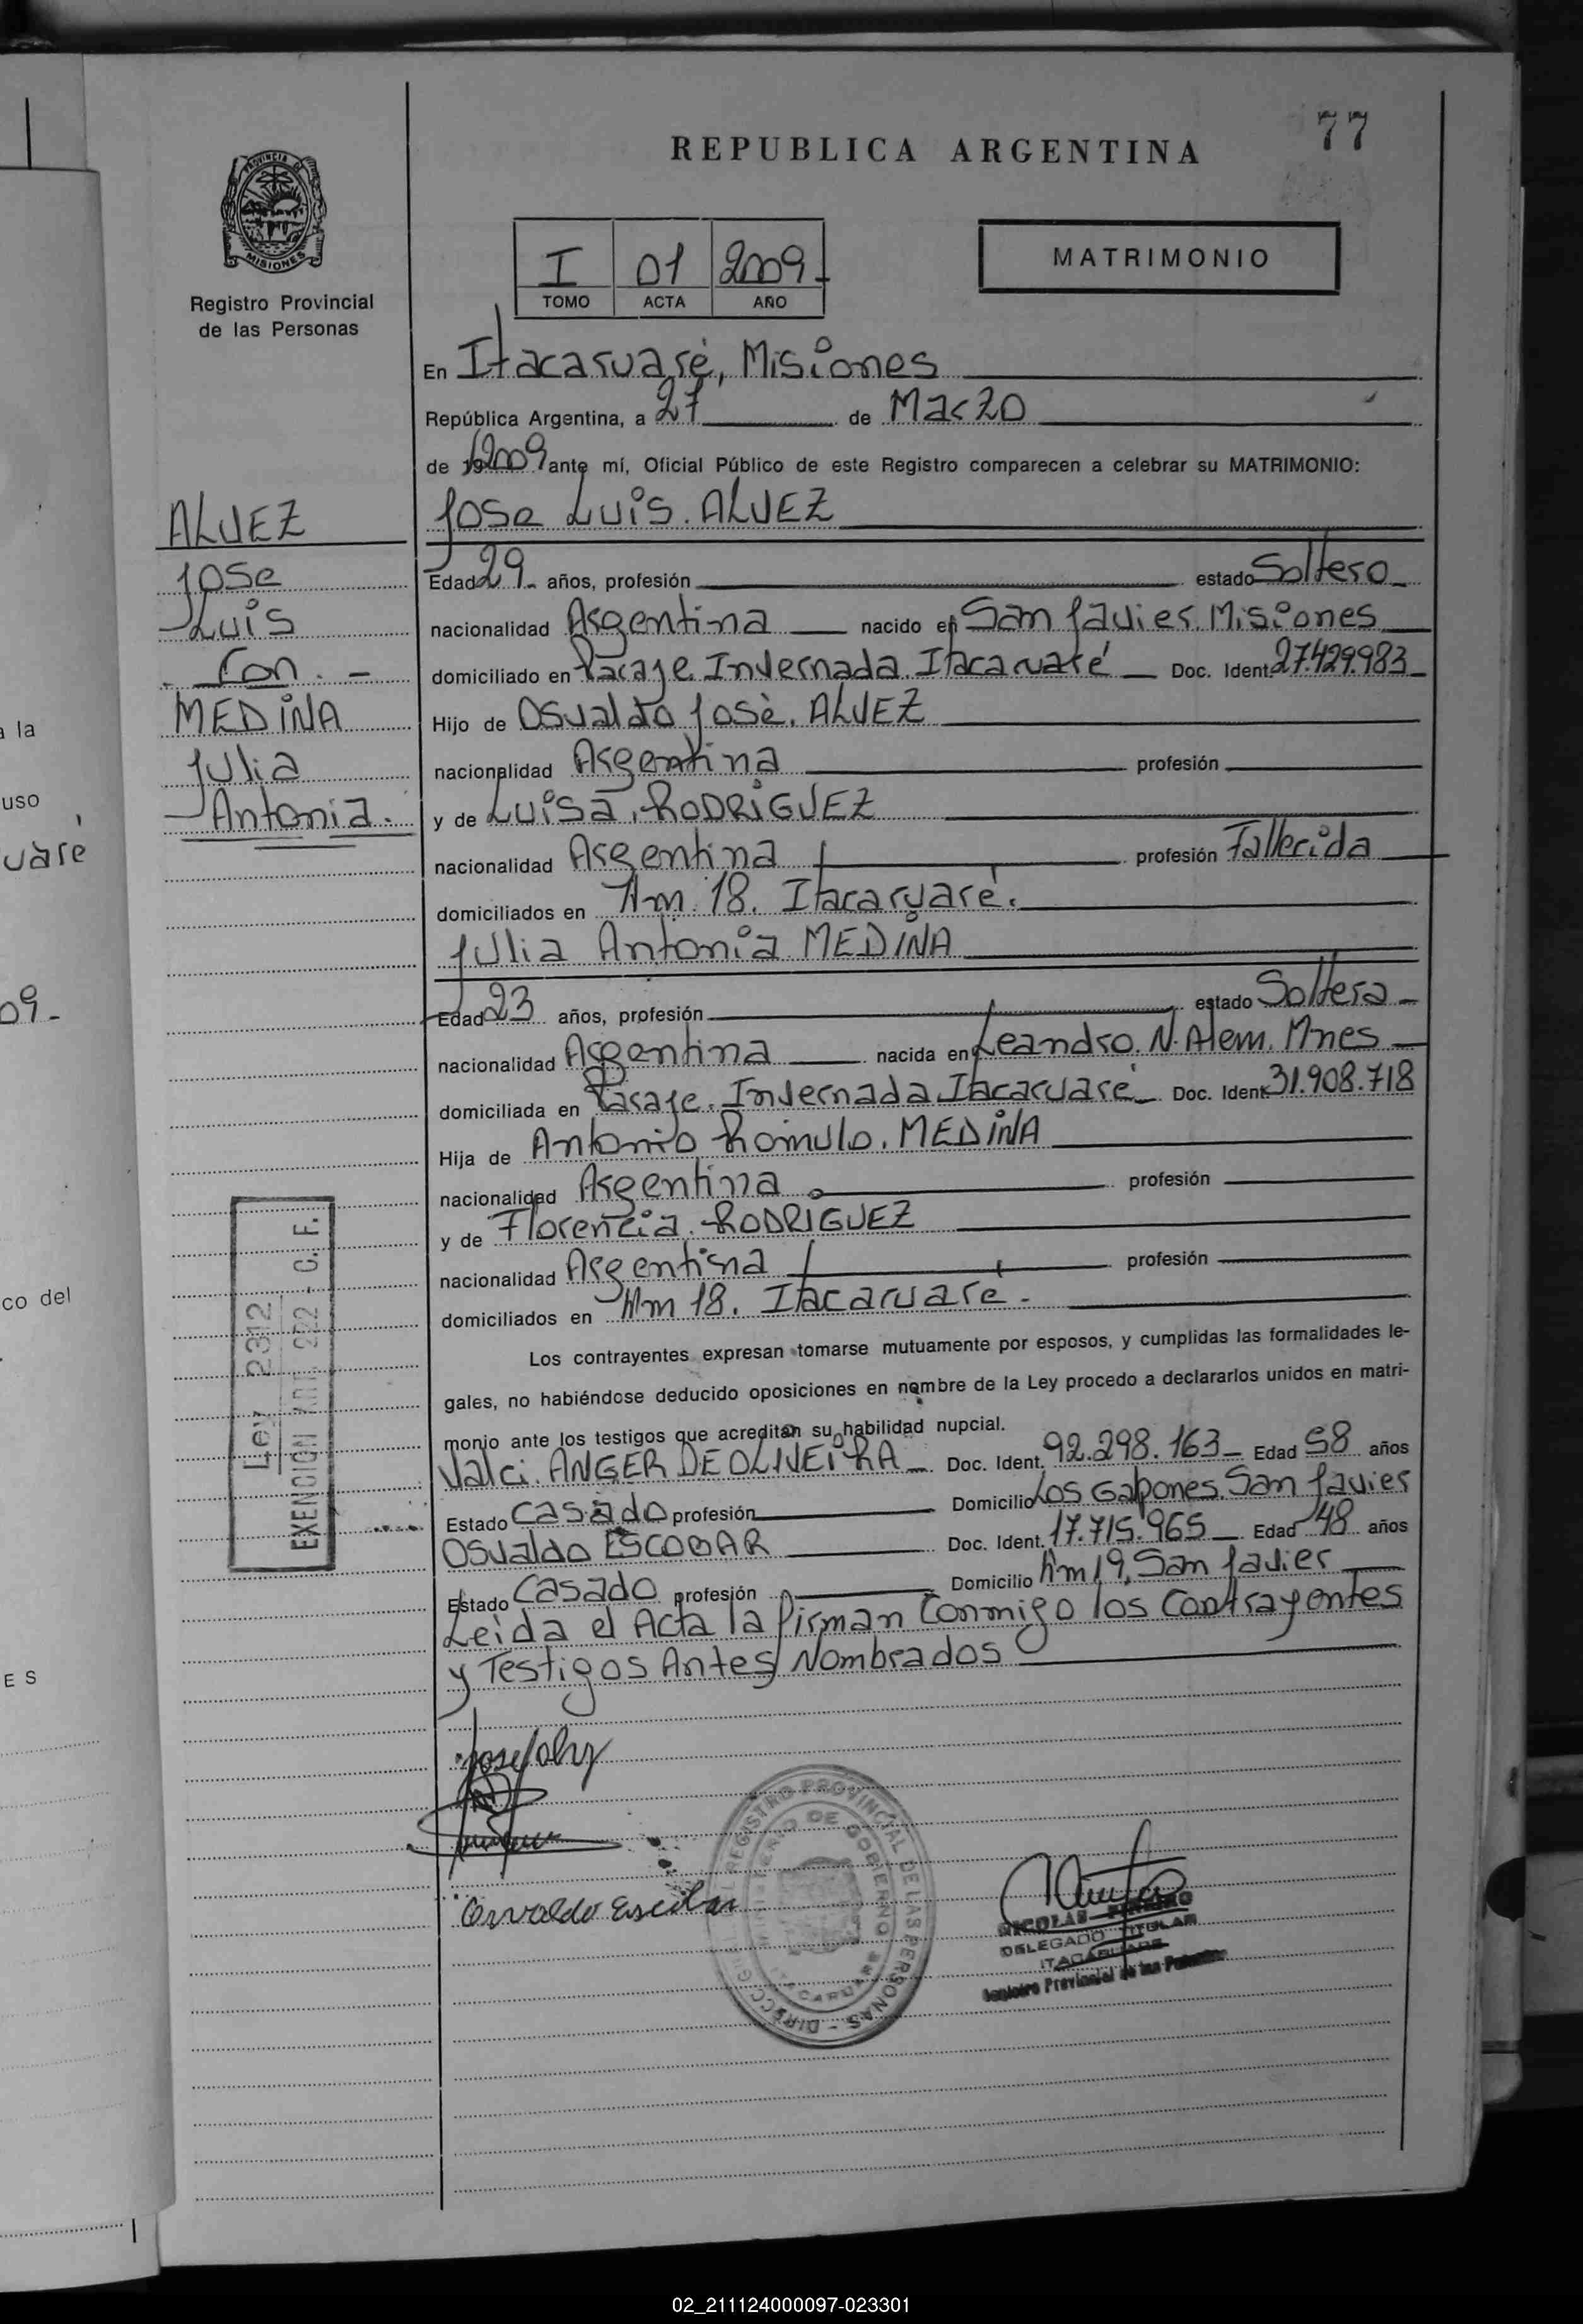 77
REPUBLICA ARGENTINA
PROVINCIA DE
MISIONES
Registro Provincial
de las Personas
I 01 2009
TOMO ACTA AÑO
MATRIMONIO
En Itacaruaré, Misiones
República Argentina, a 27 de Marzo
de 2009 ante mí, Oficial Público de este Registro comparecen a celebrar su MATRIMONIO:
Jose Luis. ALVEZ
ALVEZ
Jose
Luis
Con. -
MEDINA
Julia
Antonia.
Edad 29 años, profesión estado Soltero
nacionalidad Argentina nacido en San Javier. Misiones
domiciliado en Paraje. Invernada. Itacaruaré Doc. Ident. 27.429.983
Hijo de Osvaldo José. ALVEZ
nacionalidad Argentina profesión
y de Luisa. RODRIGUEZ
nacionalidad Argentina profesión Fallecida
domiciliados en Km 18. Itacaruaré.
Julia Antonia MEDINA
Edad 23 años, profesión estado Soltera
nacionalidad Argentina nacida en Leandro. N. Alem. Mnes
domiciliada en Paraje. Invernada Itacaruaré Doc. Ident. 31.908.718
Hija de Antonio Romulo. MEDINA
nacionalidad Argentina profesión
y de Florencia. RODRIGUEZ
nacionalidad Argentina profesión
domiciliados en Km 18. Itacaruaré.
Los contrayentes expresan tomarse mutuamente por esposos, y cumplidas las formalidades le-
gales, no habiéndose deducido oposiciones en nombre de la Ley procedo a declararlos unidos en matri-
monio ante los testigos que acreditan su habilidad nupcial.
Valci. ANGER DE OLIVEIRA Doc. Ident. 92.298.163 Edad 58 años
Estado Casado profesión Domicilio Los Galpones. San Javier
Osvaldo ESCOBAR Doc. Ident. 17.715.965 Edad 48 años
Estado Casado profesión Domicilio Km 19, San Javier
Leida el Acta la firman Conmigo los Contrayentes
y Testigos Antes Nombrados
Ley 2312
EXENCION ART. 222 - C. F.
Osvaldo Escobar
REGISTRO PROVINCIAL DE LAS PERSONAS - DIRECCION
MINISTERIO DE GOBIERNO
ITACARUARE
NICOLAS
DELEGADO TITULAR
ITACARUARE
Registro Provincial de las Personas
a la
uso
uaré
09-
co del
ES
02_211124000097-023301